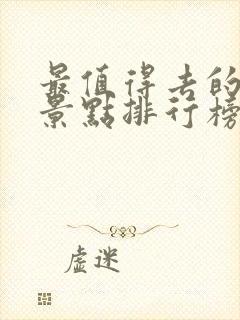 最值得去的
景點排行榜
虛迷